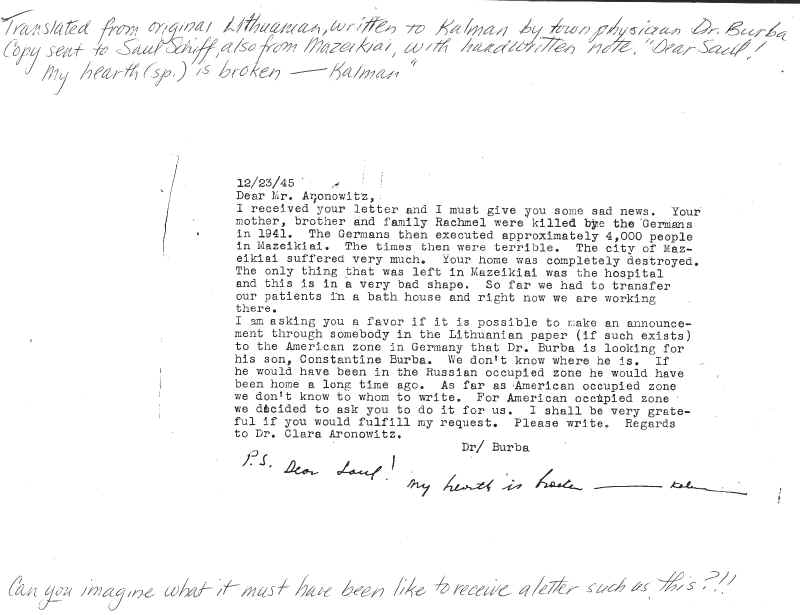 Translated from original Lithuanian, written to Kalman by town physician Dr. Burba
Copy sent to Saul Schiff, also from Mazeikiai, with handwritten note. "Dear Saul!
My hearth (sp.) is broken — Kalman"
12/23/45
Dear Mr. Aronowitz,
I received your letter and I must give you some sad news. Your
mother, brother and family Rachmel were killed bye the Germans
in 1941. The Germans then executed approximately 4,000 people
in Mazeikiai. The times then were terrible. The city of Maz-
eikiai suffered very much. Your home was completely destroyed.
The only thing that was left in Mazeikiai was the hospital
and this is in a very bad shape. So far we had to transfer
our patients in a bath house and right now we are working
there.
I am asking you a favor if it is possible to make an announce-
ment through somebody in the Lithuanian paper (if such exists)
to the American zone in Germany that Dr. Burba is looking for
his son, Constantine Burba. We don't know where he is. If
he would have been in the Russian occupied zone he would have
been home a long time ago. As far as American occupied zone
we don't know to whom to write. For American occupied zone
we decided to ask you to do it for us. I shall be very grate-
ful if you would fulfill my request. Please write. Regards
to Dr. Clara Aronowitz.
Dr/ Burba
P.S. Dear Saul! My hearth is broken — Kalman
Can you imagine what it must have been like to receive a letter such as this?!!